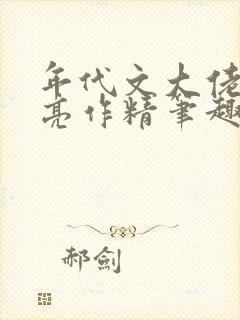 年代文大佬
亮作精筆趣
郝劍